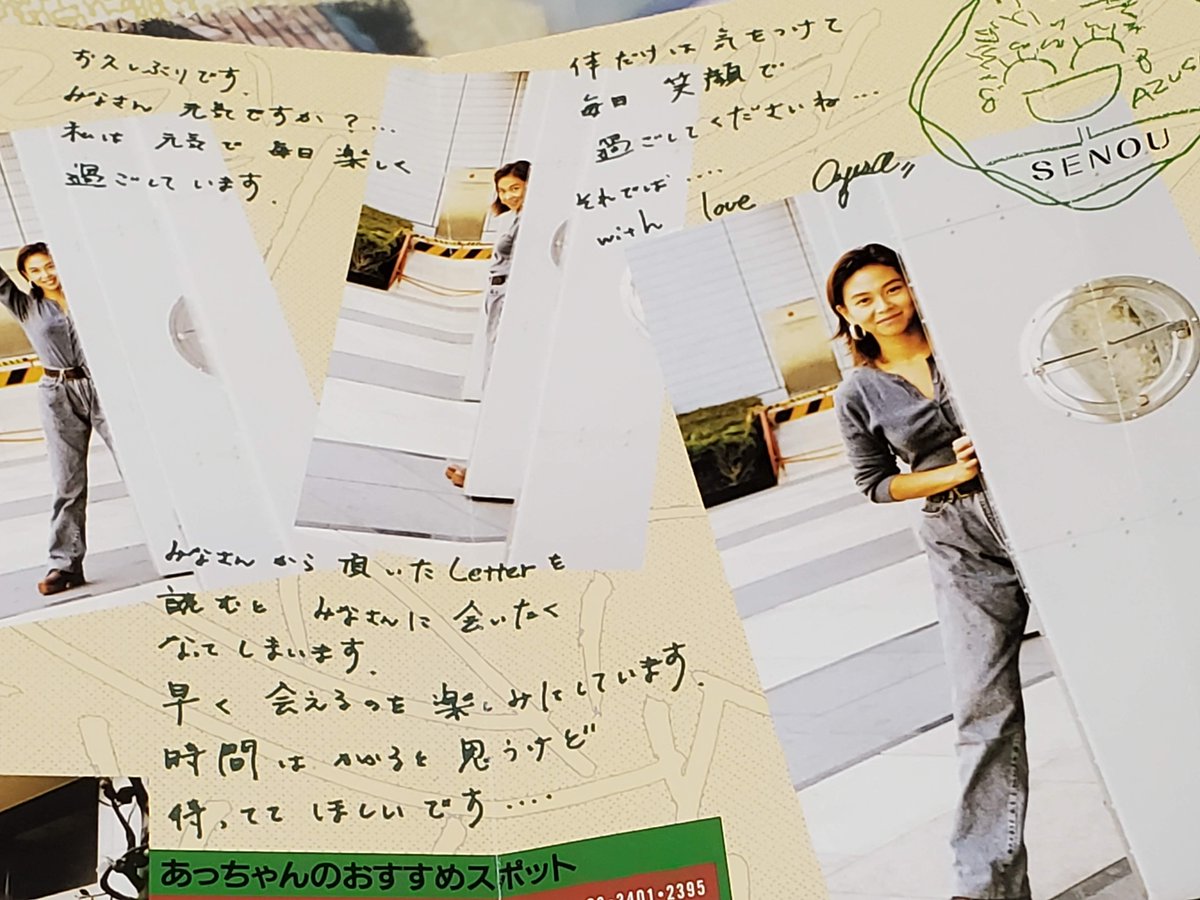 お久しぶりです.
みなさん 元気ですか?...
私は 元気で 毎日 楽しく
過ごして います.
みなさんから 頂いた Letterを
読むと みなさんに 会いたく
なってしまいます.
早く 会えるのを 楽しみにしています.
時間は かかると 思うけど
待ってて ほしいです....
体だけは 気をつけて
毎日 笑顔で
過ごしてくださいね...
それでは....
with love Azusa
AZUS
SENOU
あっちゃんのおすすめスポット
3401・2395